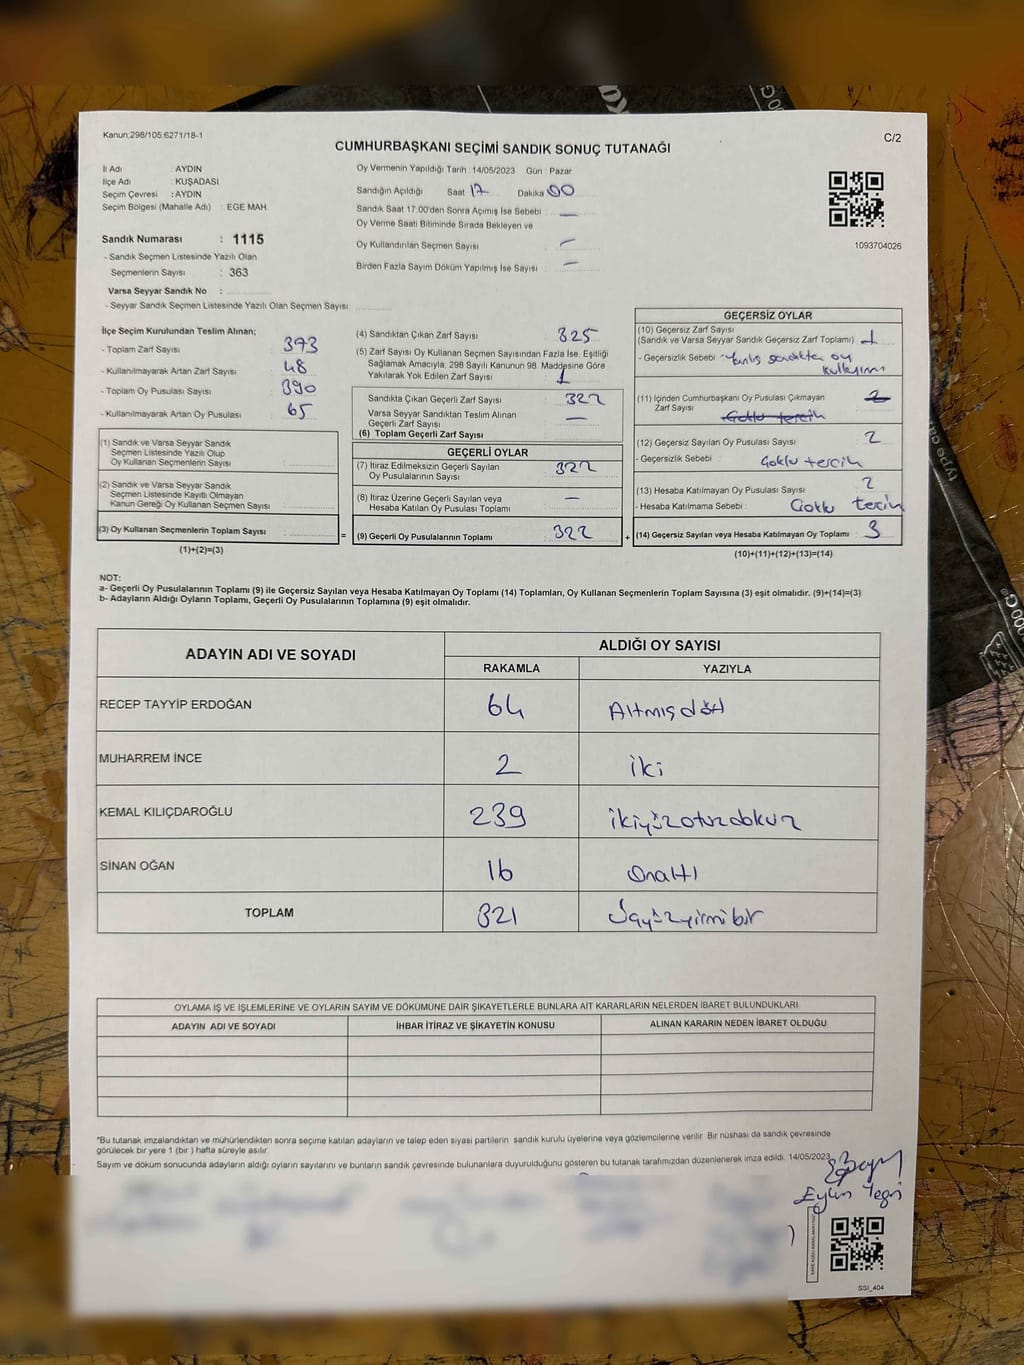 Kanun,298/105,6271/18-1
C/2
CUMHURBAŞKANI SEÇİMİ SANDIK SONUÇ TUTANAĞI
İl Adı : AYDIN
İlçe Adı : KUŞADASI
Seçim Çevresi : AYDIN
Seçim Bölgesi (Mahalle Adı) : EGE MAH.
Oy Vermenin Yapıldığı Tarih : 14/05/2023 Gün : Pazar
Sandığın Açıldığı Saat 17 Dakika 00
Sandık Saat 17:00'den Sonra Açımış İse Sebebi : —
Oy Verme Saati Bitiminde Sırada Bekleyen ve
Oy Kullandırılan Seçmen Sayısı : —
Birden Fazla Sayım Döküm Yapılmış İse Sayısı : —
1093704026
Sandık Numarası : 1115
- Sandık Seçmen Listesinde Yazılı Olan
Seçmenlerin Sayısı : 363
Varsa Seyyar Sandık No :
- Seyyar Sandık Seçmen Listesinde Yazılı Olan Seçmen Sayısı:
İlçe Seçim Kurulundan Teslim Alınan;
- Toplam Zarf Sayısı : 373
- Kullanılmayarak Artan Zarf Sayısı : 48
- Toplam Oy Pusulası Sayısı : 390
- Kullanılmayarak Artan Oy Pusulası : 65
(1) Sandık ve Varsa Seyyar Sandık
Seçmen Listesinde Yazılı Olup
Oy Kullanan Seçmenlerin Sayısı :
(2) Sandık ve Varsa Seyyar Sandık
Seçmen Listesinde Kayıtlı Olmayan
Kanun Gereği Oy Kullanan Seçmen Sayısı :
(3) Oy Kullanan Seçmenlerin Toplam Sayısı :
(1)+(2)=(3)
=
(4) Sandıktan Çıkan Zarf Sayısı : 325
(5) Zarf Sayısı Oy Kullanan Seçmen Sayısından Fazla İse, Eşitliği
Sağlamak Amacıyla, 298 Sayılı Kanunun 98. Maddesine Göre
Yakılarak Yok Edilen Zarf Sayısı : 1
Sandıkta Çıkan Geçerli Zarf Sayısı : 322
Varsa Seyyar Sandıktan Teslim Alınan
Geçerli Zarf Sayısı : —
(6) Toplam Geçerli Zarf Sayısı :
GEÇERLİ OYLAR
(7) İtiraz Edilmeksizin Geçerli Sayılan
Oy Pusulalarının Sayısı : 322
(8) İtiraz Üzerine Geçerli Sayılan veya
Hesaba Katılan Oy Pusulası Toplamı : —
(9) Geçerli Oy Pusulalarının Toplamı : 322
+
GEÇERSİZ OYLAR
(10) Geçersiz Zarf Sayısı
(Sandık ve Varsa Seyyar Sandık Geçersiz Zarf Toplamı) : 1
- Geçersizlik Sebebi : Yanlış sandıkta oy
kullanımı
(11) İçinden Cumhurbaşkanı Oy Pusulası Çıkmayan
Zarf Sayısı : 2
Çoklu tercih
(12) Geçersiz Sayılan Oy Pusulası Sayısı : 2
- Geçersizlik Sebebi : Çoklu tercih
(13) Hesaba Katılmayan Oy Pusulası Sayısı : 2
- Hesaba Katılmama Sebebi : Çoklu tercih
(14) Geçersiz Sayılan veya Hesaba Katılmayan Oy Toplamı : 3
(10)+(11)+(12)+(13)=(14)
NOT:
a- Geçerli Oy Pusulalarının Toplamı (9) ile Geçersiz Sayılan veya Hesaba Katılmayan Oy Toplamı (14) Toplamları, Oy Kullanan Seçmenlerin Toplam Sayısına (3) eşit olmalıdır. (9)+(14)=(3)
b- Adayların Aldığı Oyların Toplamı, Geçerli Oy Pusulalarının Toplamına (9) eşit olmalıdır.
ADAYIN ADI VE SOYADI
ALDIĞI OY SAYISI
RAKAMLA YAZIYLA
RECEP TAYYİP ERDOĞAN 64 Altmışdört
MUHARREM İNCE 2 iki
KEMAL KILIÇDAROĞLU 239 ikiyüzotuzdokuz
SİNAN OĞAN 16 Onaltı
TOPLAM 321 Üçyüzyirmibir
OYLAMA İŞ VE İŞLEMLERİNE VE OYLARIN SAYIM VE DÖKÜMÜNE DAİR ŞİKAYETLERLE BUNLARA AİT KARARLARIN NELERDEN İBARET BULUNDUKLARI
ADAYIN ADI VE SOYADI İHBAR İTİRAZ VE ŞİKAYETİN KONUSU ALINAN KARARIN NEDEN İBARET OLDUĞU
*Bu tutanak imzalandıktan ve mühürlendikten sonra seçime katılan adayların ve talep eden siyasi partilerin sandık kurulu üyelerine veya gözlemcilerine verilir. Bir nüshası da sandık çevresinde
görülecek bir yere 1 (bir) hafta süreyle asılır.
Sayım ve döküm sonucunda adayların aldığı oyların sayılarını ve bunların sandık çevresinde bulunanlara duyurulduğunu gösteren bu tutanak tarafımızdan düzenlenerek imza edildi. 14/05/2023
SSİ_404